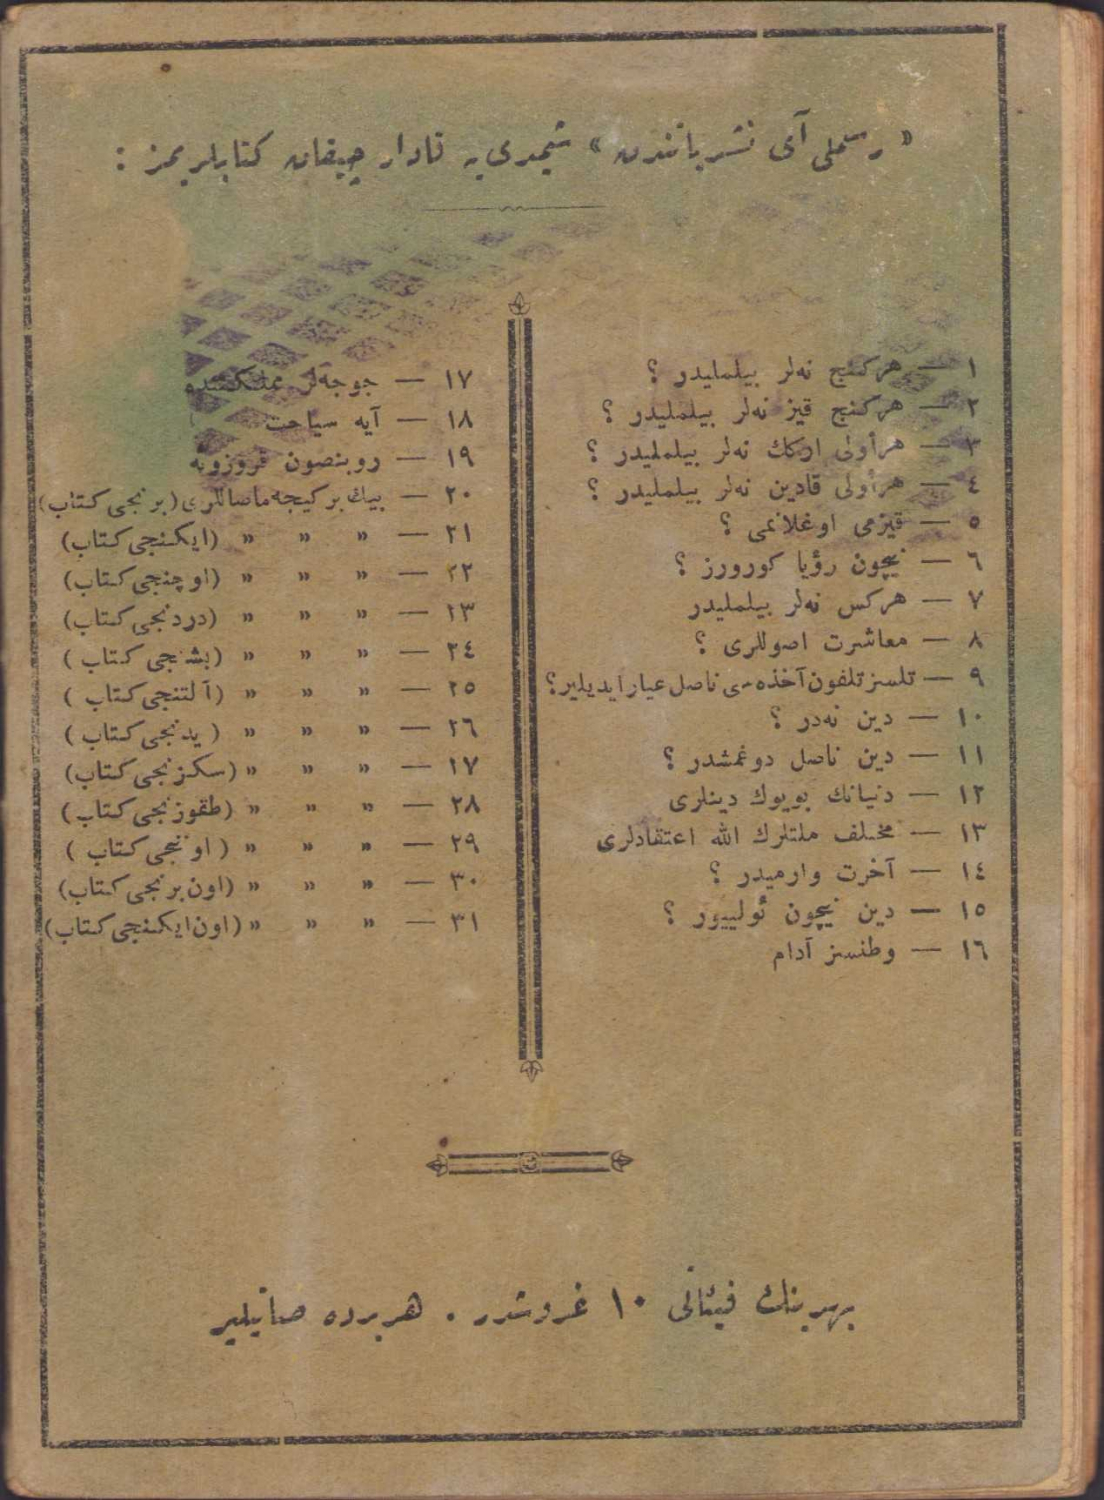 « رسملی آی نشریاتندن » شیمدی یه قادار چیقان کتابلریمز :
١ — هرکنج نەلر بیلملیدر ؟
٢ — هرکنج قیز نەلر بیلملیدر ؟
٣ — هرأولی ارکك نەلر بیلملیدر ؟
٤ — هرأولی قادین نەلر بیلملیدر ؟
٥ — قیزمی اوغلانمی ؟
٦ — نیچون رؤیا کورورز ؟
٧ — هرکس نەلر بیلملیدر
٨ — معاشرت اصوللری ؟
٩ — تلسز تلفون آخذه سی ناصل عیار ایدیلیر ؟
١٠ — دین نەدر ؟
١١ — دین ناصل دوغمشدر ؟
١٢ — دنیانك بویوك دینلری
١٣ — مختلف ملتلرك الله اعتقادلری
١٤ — آخرت وارمیدر ؟
١٥ — دین نیچون ئولییور ؟
١٦ — وطنسز آدام
١٧ — جوجەلر مملکتنده
١٨ — آیه سیاحت
١٩ — روبنصون قروزوئه
٢٠ — بیك بر کیجه ماصاللری (برنجی کتاب)
٢١ — » » » (ایکنجی کتاب)
٢٢ — » » » (اوچنجی کتاب)
٢٣ — » » » (دردنجی کتاب)
٢٤ — » » » (بشنجی کتاب )
٢٥ — » » » (آلتنجی کتاب )
٢٦ — » » » ( یدنجی کتاب )
١٧ — » » » (سکزنجی کتاب)
٢٨ — » » » (طقوزنجی کتاب )
٢٩ — » » » ( اوننجی کتاب )
٣٠ — » » » (اون برنجی کتاب)
٣١ — » » » (اون ایکنجی کتاب)
بهرینك فیئاتی ١٠ غروشدر . هریرده صاتیلیر